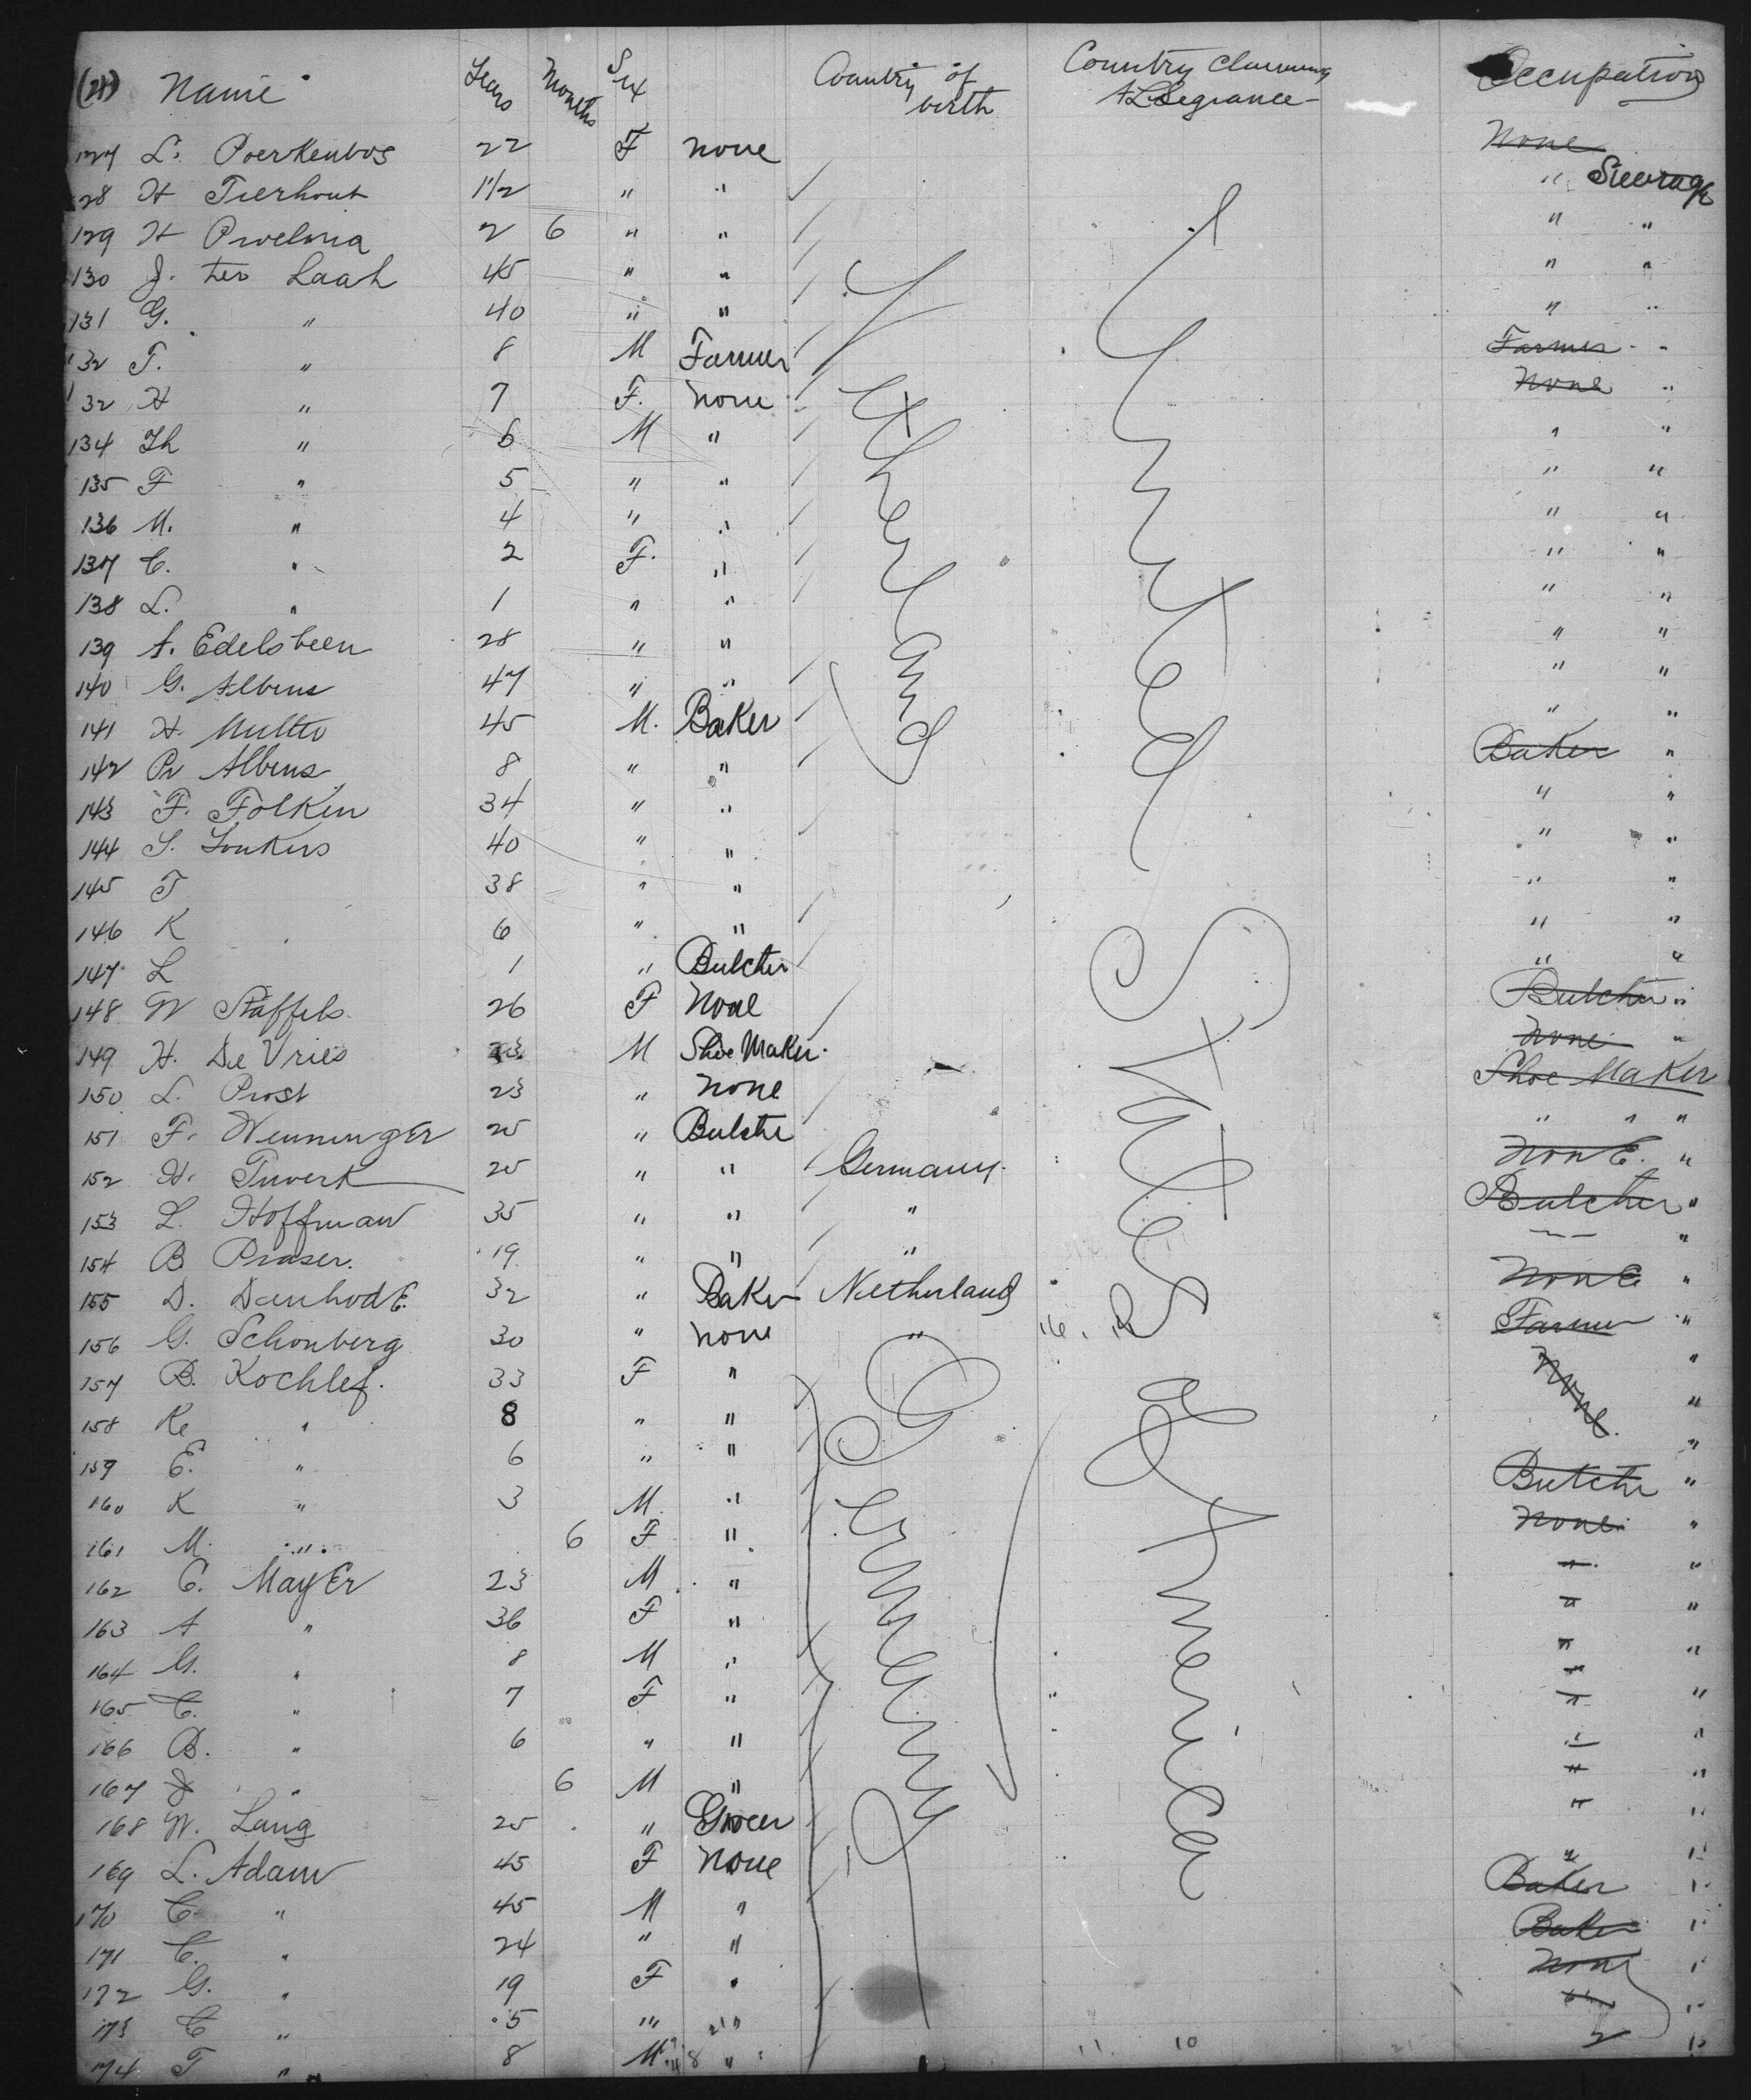 (21) Name Years Months Sex Country of birth Country Claiming Allegiance Occupation
127 L. Poerkenbos 22 F none None
128 H Tierhout 11/2 " " " Steerage
129 H Proelsma 2 6 " " " "
130 J. ter Laak 45 " " " "
131 G. " 40 " " " "
132 T. " 8 M Farmer Farmer "
132 H " 7 F. none None "
134 Th " 6 M " " "
135 F " 5 " " " "
136 M. " 4 " " " "
137 C. " 2 F. " " "
138 L. " 1 " " " "
139 A. Edelsbeen 28 " " " "
140 G. Albens 47 " " " "
141 H. Multto 45 M. Baker " "
142 Pr Albens 8 " " Baker "
143 F. Folkin 34 " " " "
144 S. Jonkers 40 " " " "
145 T 38 " " " "
146 K 6 " " " "
147 L 1 " Butcher " "
148 W Staffels 26 F None Butcher "
149 H. De Vries 23 M Shoe Maker None "
150 L. Prost 23 " none Shoe Maker
151 F. Wenninger 25 " Butche " " "
152 H. 25 " " Germany None "
153 L. Hoffman 35 " " " Butcher "
154 B Praser. 19 " " " "
155 D. Danhode. 32 " Baker Netherland None "
156 G. Schonberg 30 " none " Farmer "
157 B. Kochlef. 33 F " "
158 Ke " 8 " " None "
159 E. " 6 " " "
160 K " 3 M. " Butche "
161 M. " 6 F " None "
162 C. Mayer 23 M " " "
163 A " 36 F " " "
164 G. " 8 M " " "
165 C. " 7 F " " "
166 B. " 6 " " " "
167 J " 6 M " " "
168 W. Lang 25 " Grocer " "
169 L. Adam 45 F None " "
170 C. " 45 M " Baker "
171 C. " 24 " " Baker "
172 G. " 19 F " None "
173 C " 5 " " " "
174 T " 8 M 8 " "
Netherland
Germany
United States of America
11 10